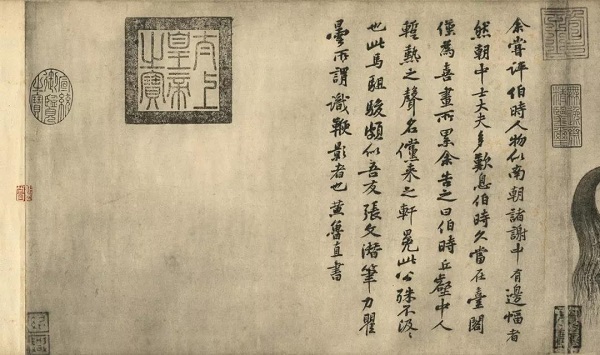 余嘗評伯時人物似南朝諸謝中有邊幅者
然朝中士大夫多歎息伯時久當在臺閣
僅為喜畫所累余告之曰伯時丘壑中人
暫熱之聲名儻來之軒冕此公殊不汲〻
也此馬駔駿頗似吾友張文潛筆力瞿
曇所謂識鞭影者也黃魯直書
太上
皇帝
之寶
宣統
御覽
之寶